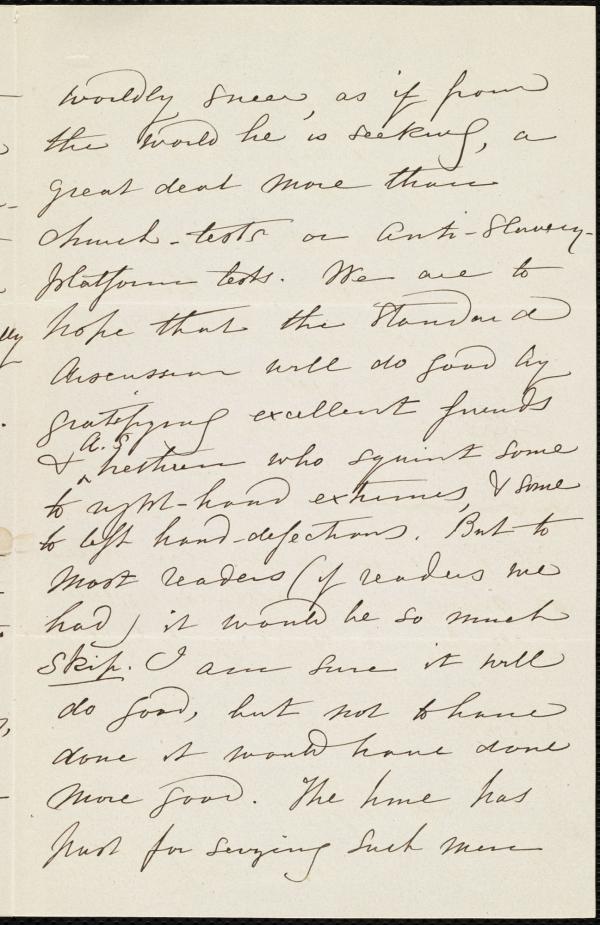 worldly sneer, as if from
the world he is seeking, a
great deal more than
church-tests or Anti-Slavery-
platform tests. We are to
hope that the Standard
discussion will do good by
gratifying excellent friends
& A.S. brethren who squint some
to right-hand extremes, & some
to left hand-defections. But to
most readers (if readers we
had) it would be so much
Skip. I am sure it will
do good, but not to have
done it would have done
more good. The time has
past for seizing such men